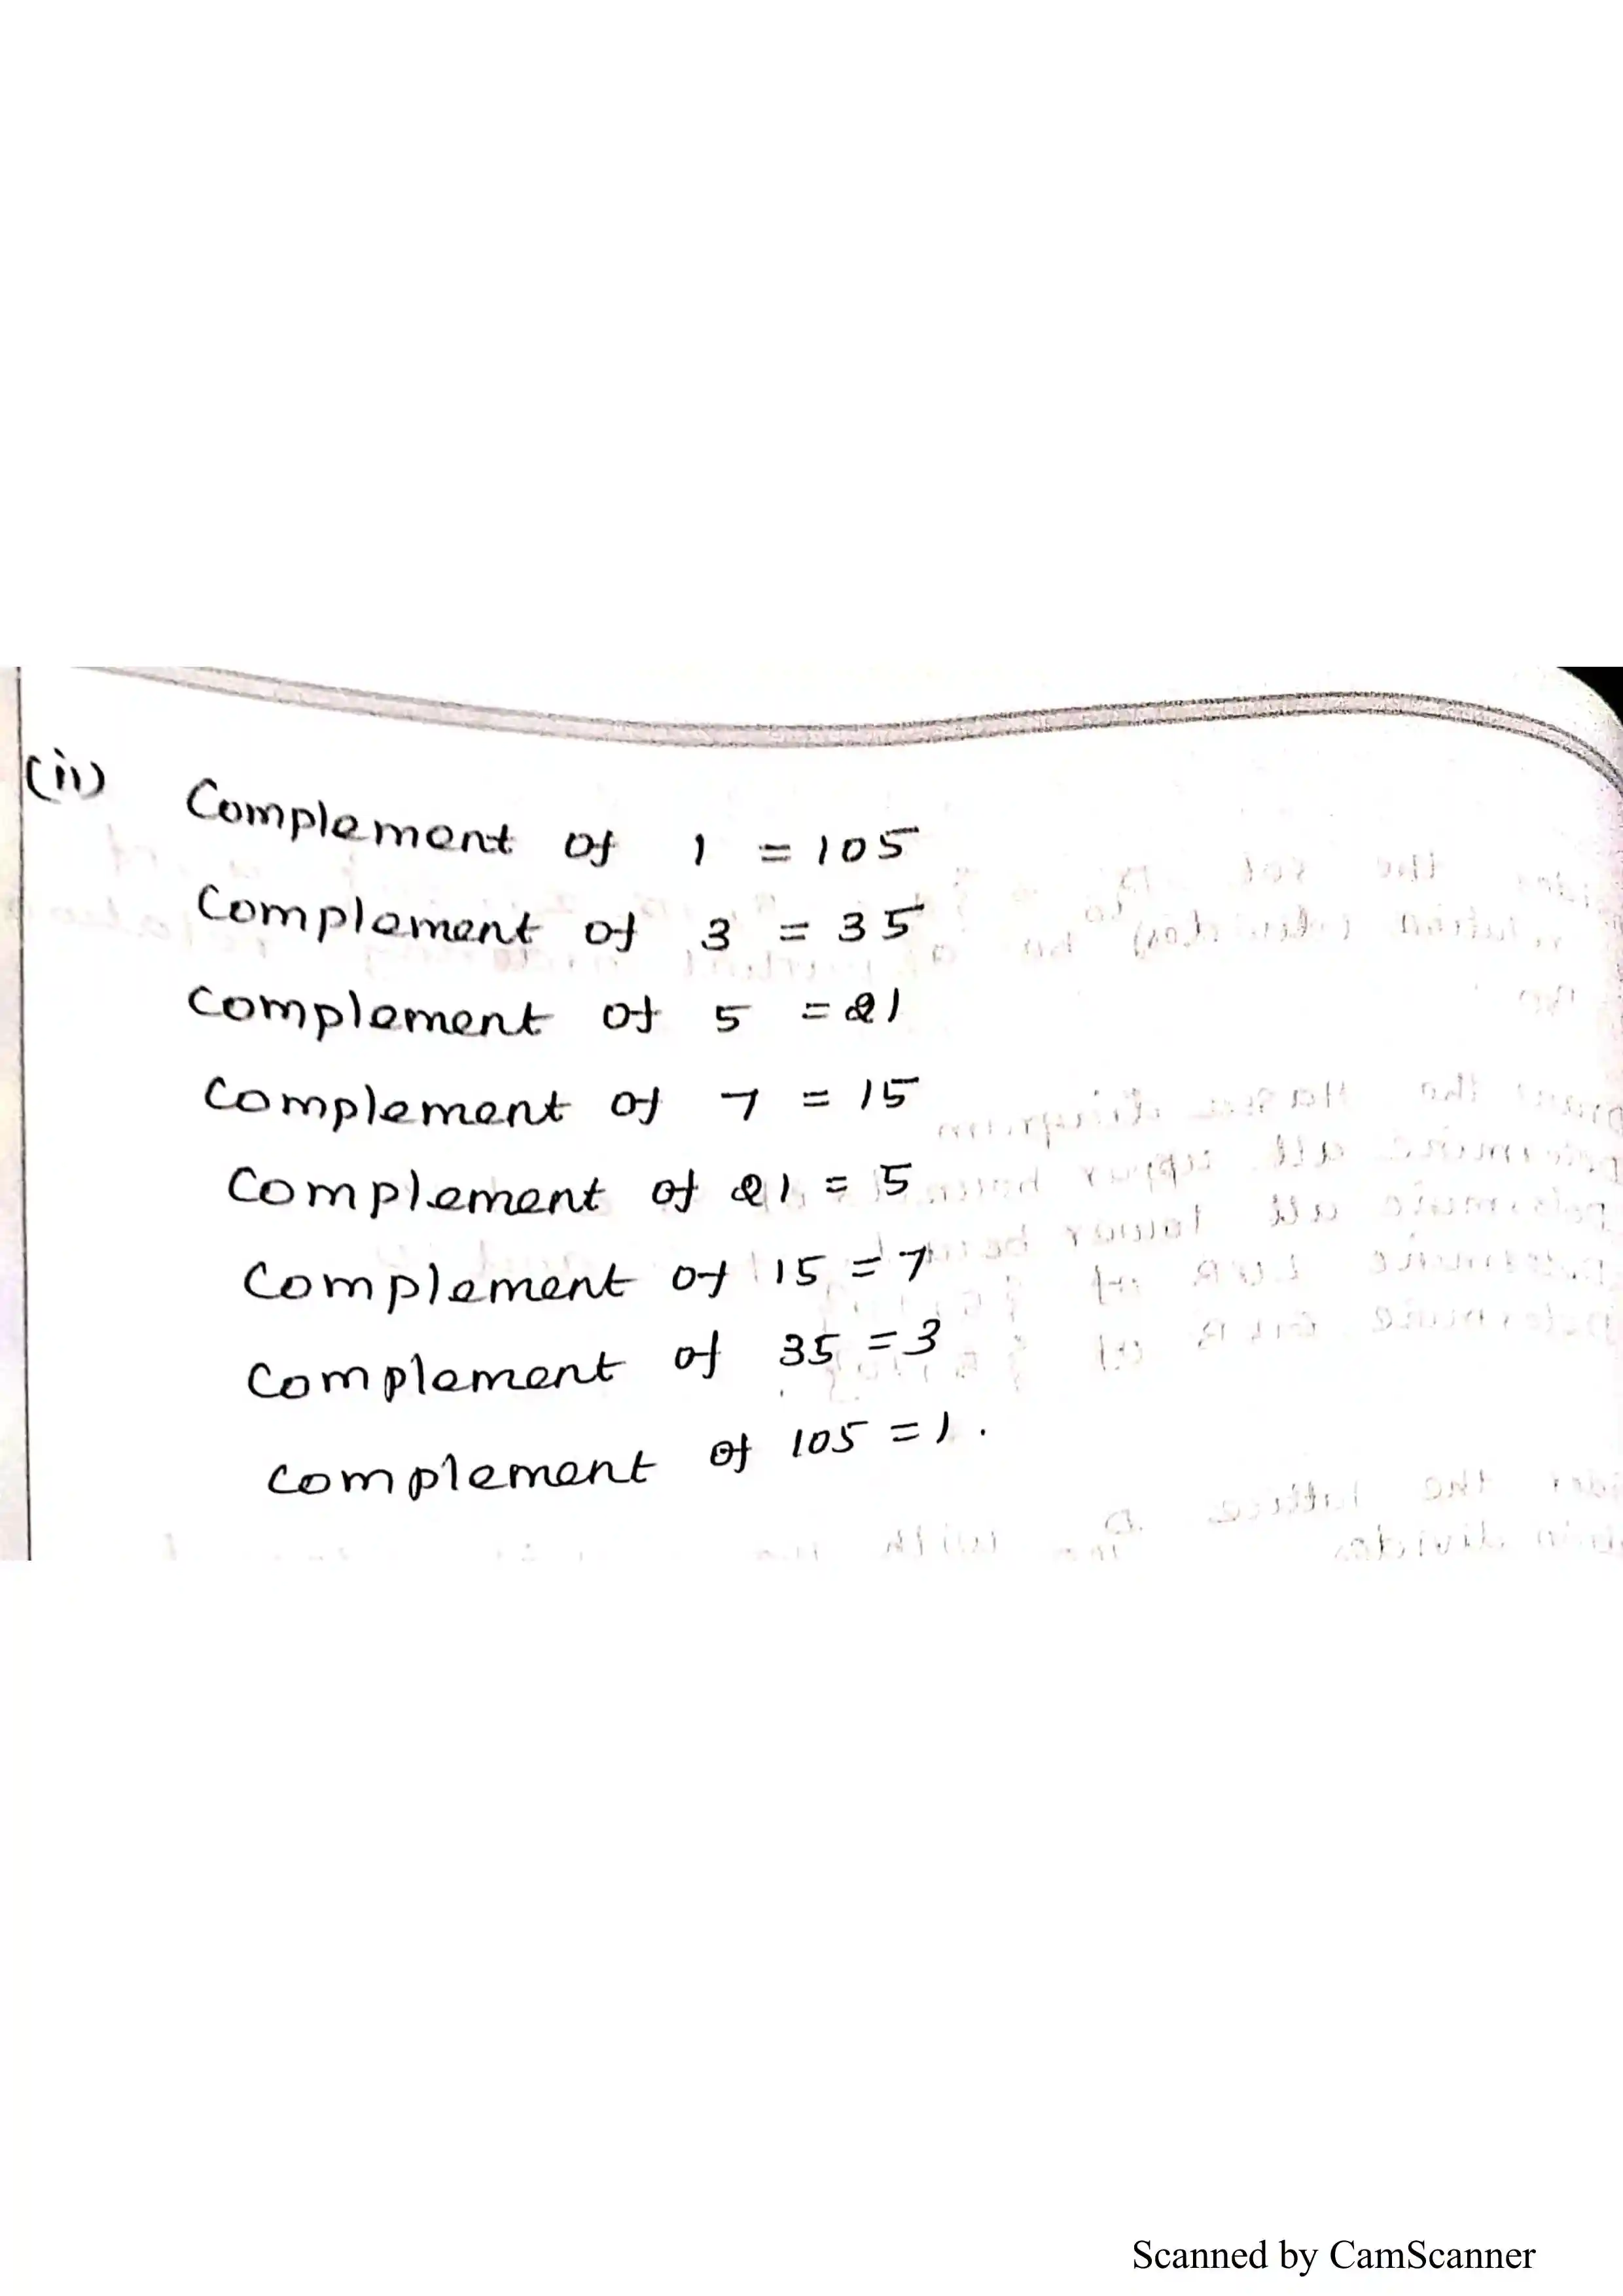 (ii) Complement of 1 = 105
Complement of 3 = 35
Complement of 5 = 21
Complement of 7 = 15
Complement of 21 = 5
Complement of 15 = 7
Complement of 35 = 3
Complement of 105 = 1.
Scanned by CamScanner